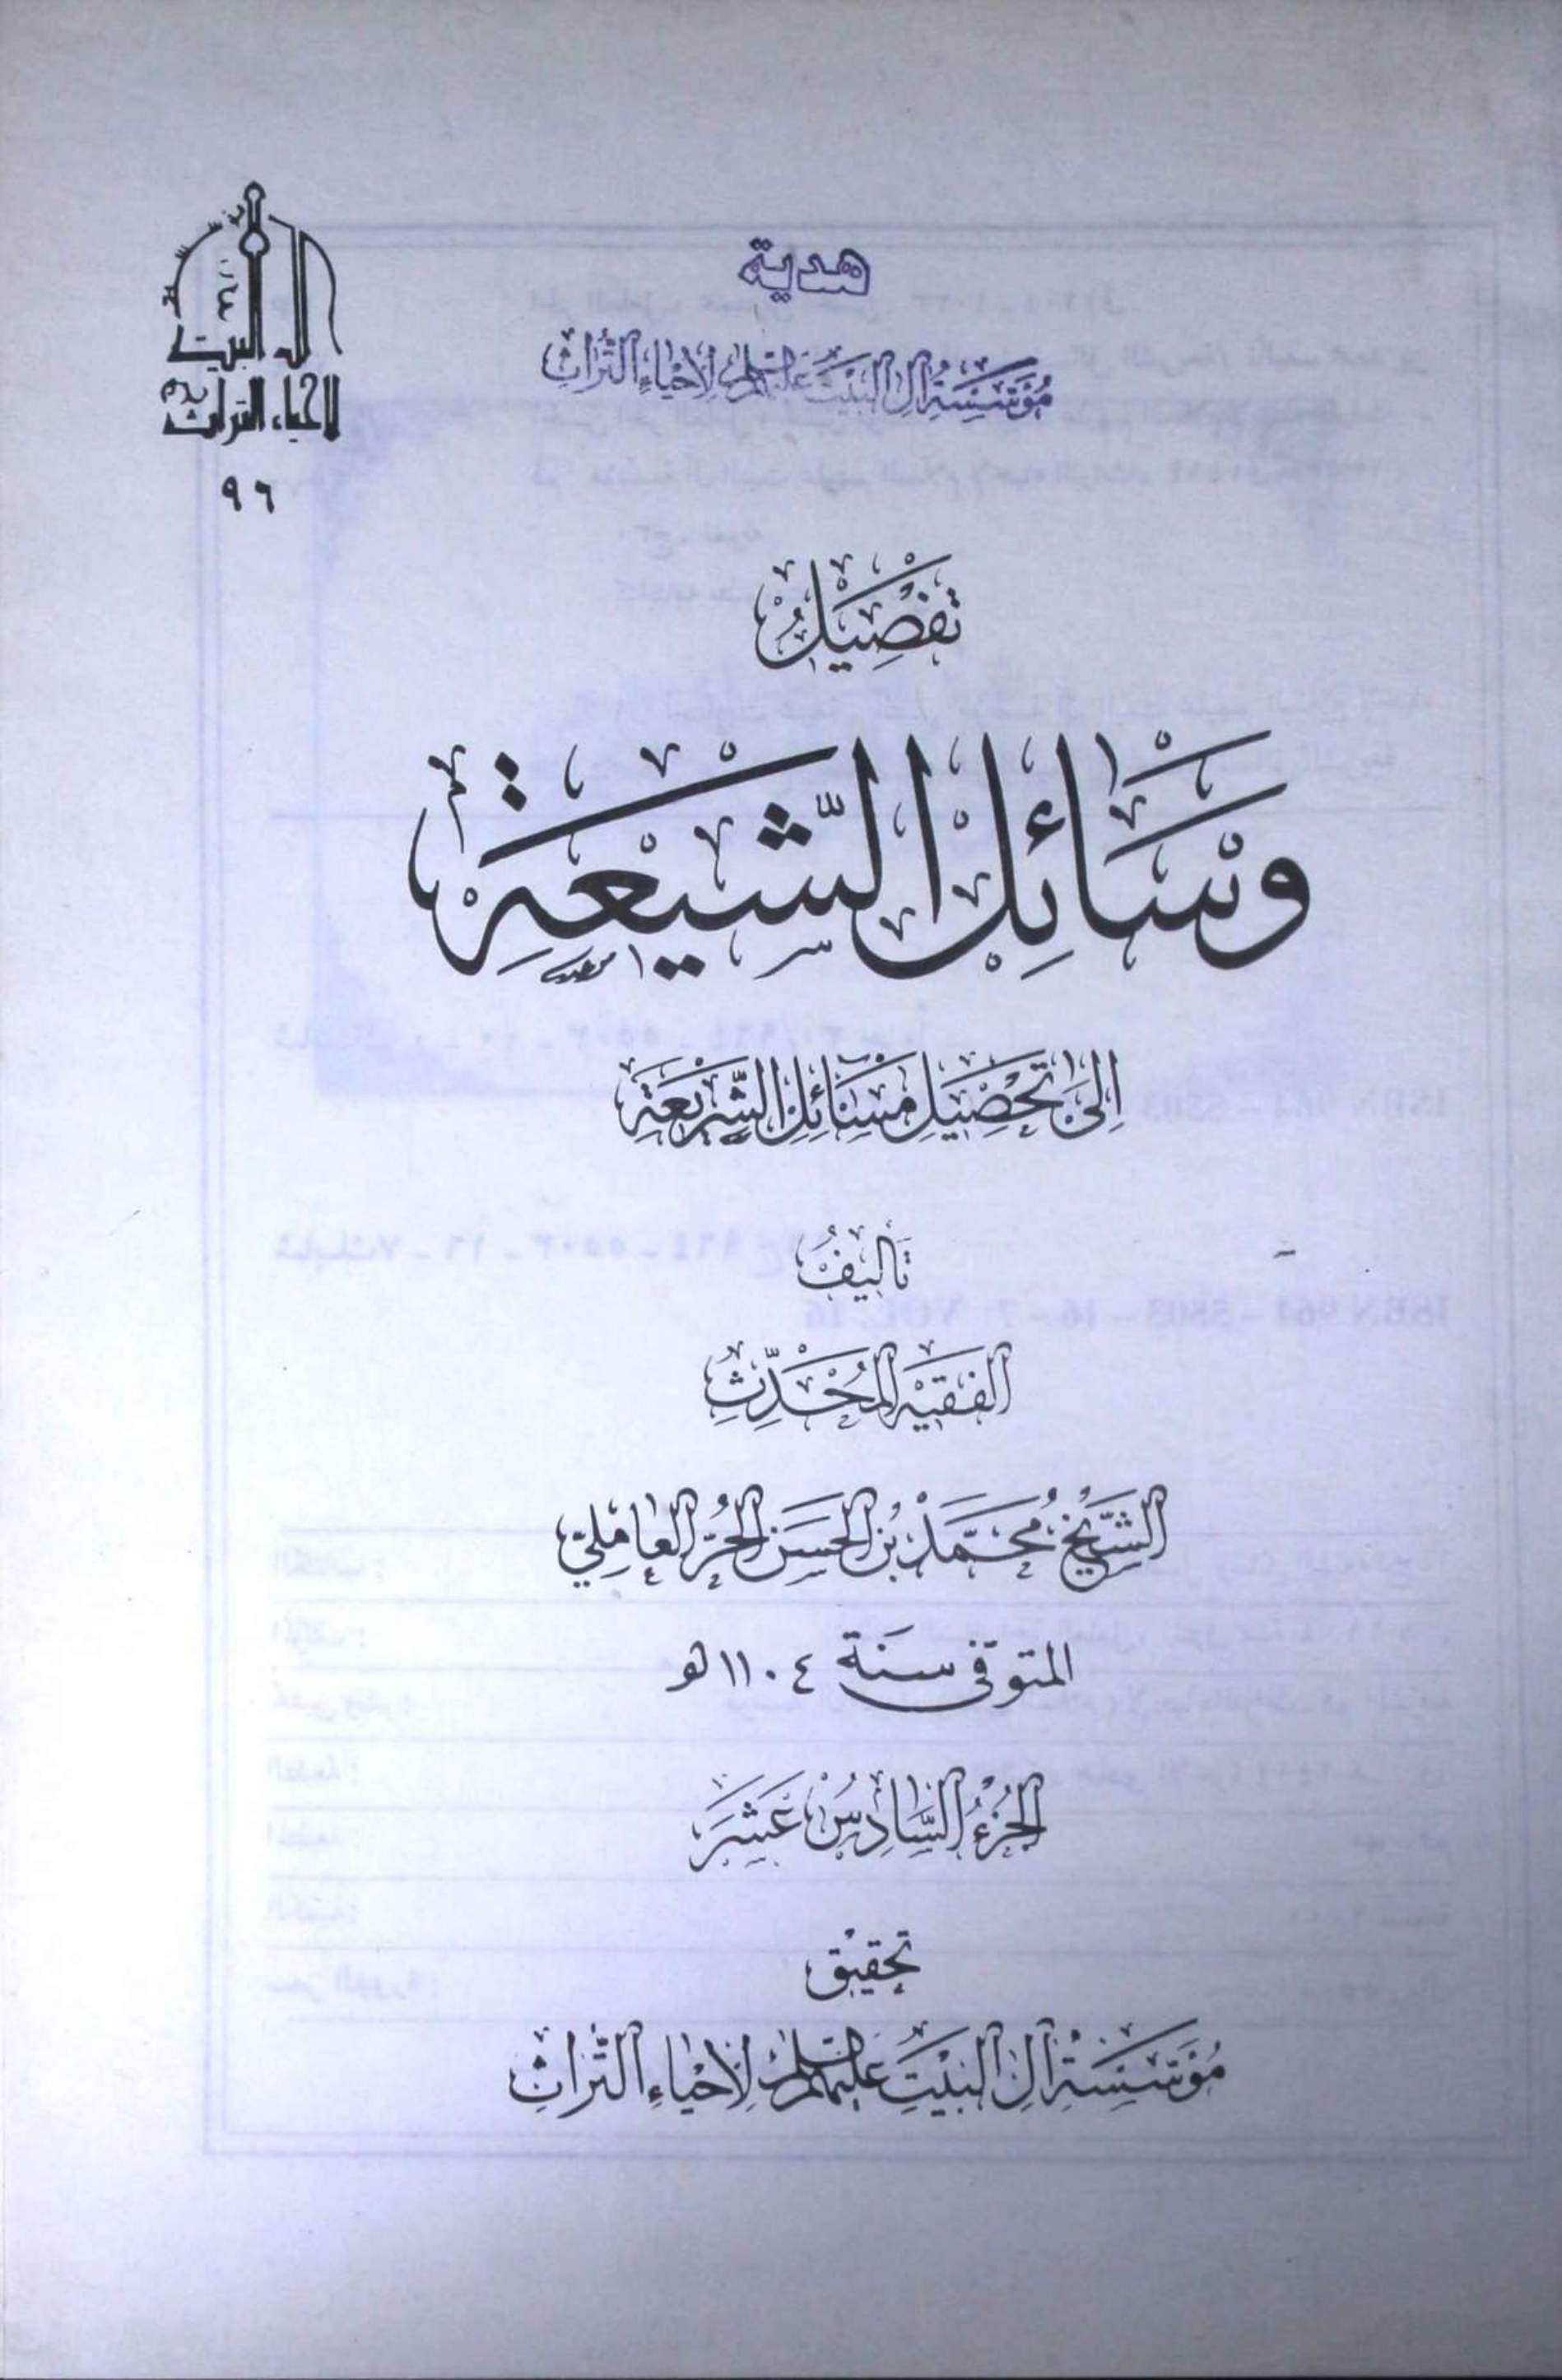 هدية
مؤسسة آل البيت عليهم السلام لإحياء التراث
آل البيت
لإحياء التراث
٩٦
تفصيل
وسائل الشيعة
إلى تحصيل مسائل الشريعة
تأليف
الفقيه المحدث
الشيخ محمد بن الحسن الحر العاملي
المتوفى سنة ١١٠٤ هـ
الجزء السادس عشر
تحقيق
مؤسسة آل البيت عليهم السلام لإحياء التراث